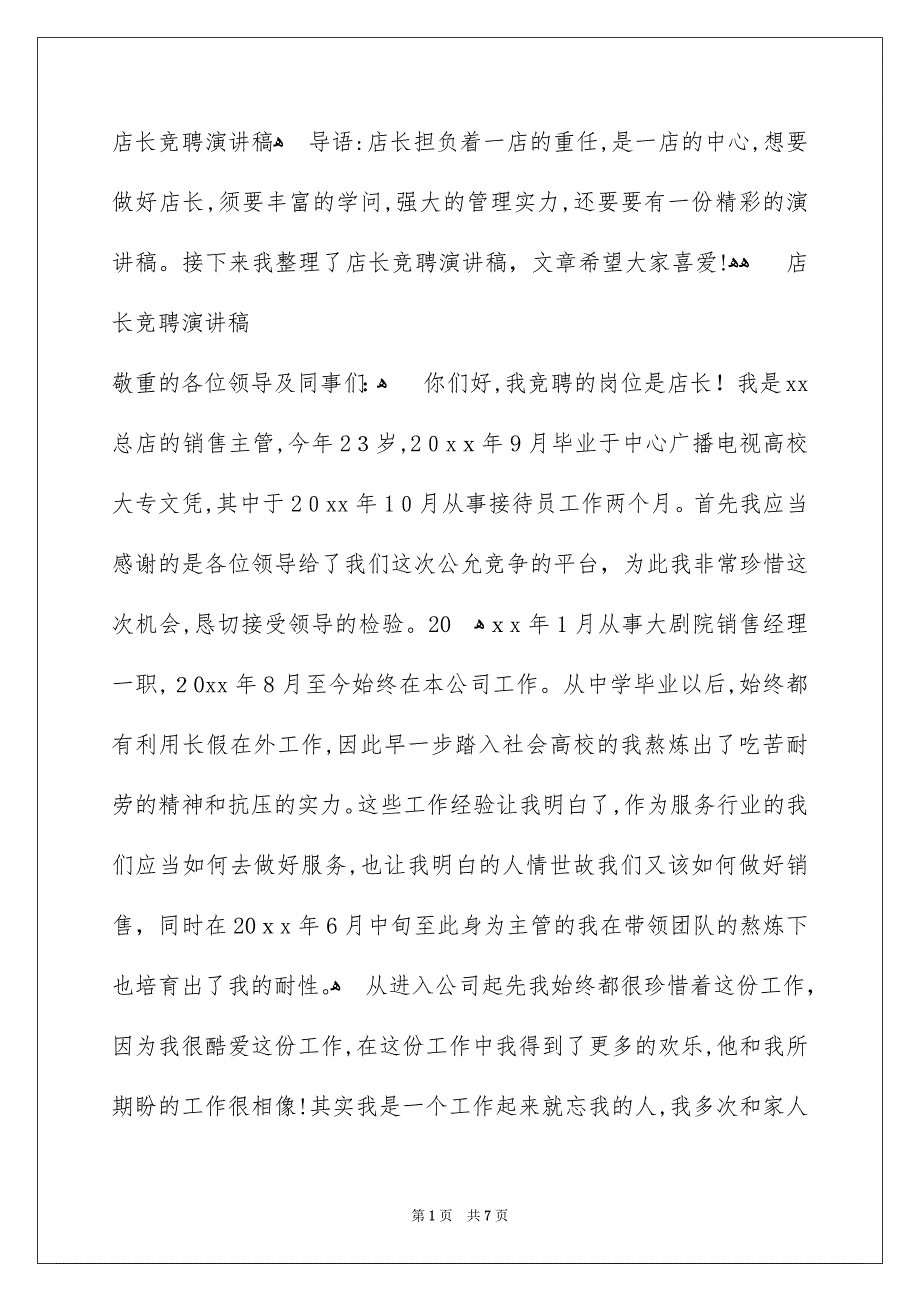 店长竞聘演讲稿ﻫ 导语:店长担负着一店的重任,是一店的中心,想要
做好店长,须要丰富的学问,强大的管理实力,还要要有一份精彩的演
讲稿。接下来我整理了店长竞聘演讲稿，文章希望大家喜爱!ﻫﻫ 店
长竞聘演讲稿
敬重的各位领导及同事们：ﻫ 你们好,我竞聘的岗位是店长！我是xx
总店的销售主管,今年23岁,20xx年9月毕业于中心广播电视高校
大专文凭,其中于20xx年10月从事接待员工作两个月。首先我应当
感谢的是各位领导给了我们这次公允竞争的平台，为此我非常珍惜这
次机会,恳切接受领导的检验。20 ﻫxx年1月从事大剧院销售经理
一职,20xx年8月至今始终在本公司工作。从中学毕业以后,始终都
有利用长假在外工作,因此早一步踏入社会高校的我熬炼出了吃苦耐
劳的精神和抗压的实力。这些工作经验让我明白了,作为服务行业的我
们应当如何去做好服务,也让我明白的人情世故我们又该如何做好销
售，同时在20xx年6月中旬至此身为主管的我在带领团队的熬炼下
也培育出了我的耐性。ﻫ 从进入公司起先我始终都很珍惜着这份工作,
因为我很酷爱这份工作,在这份工作中我得到了更多的欢乐,他和我所
期盼的工作很相像!其实我是一个工作起来就忘我的人,我多次和家人
第1页 共7页